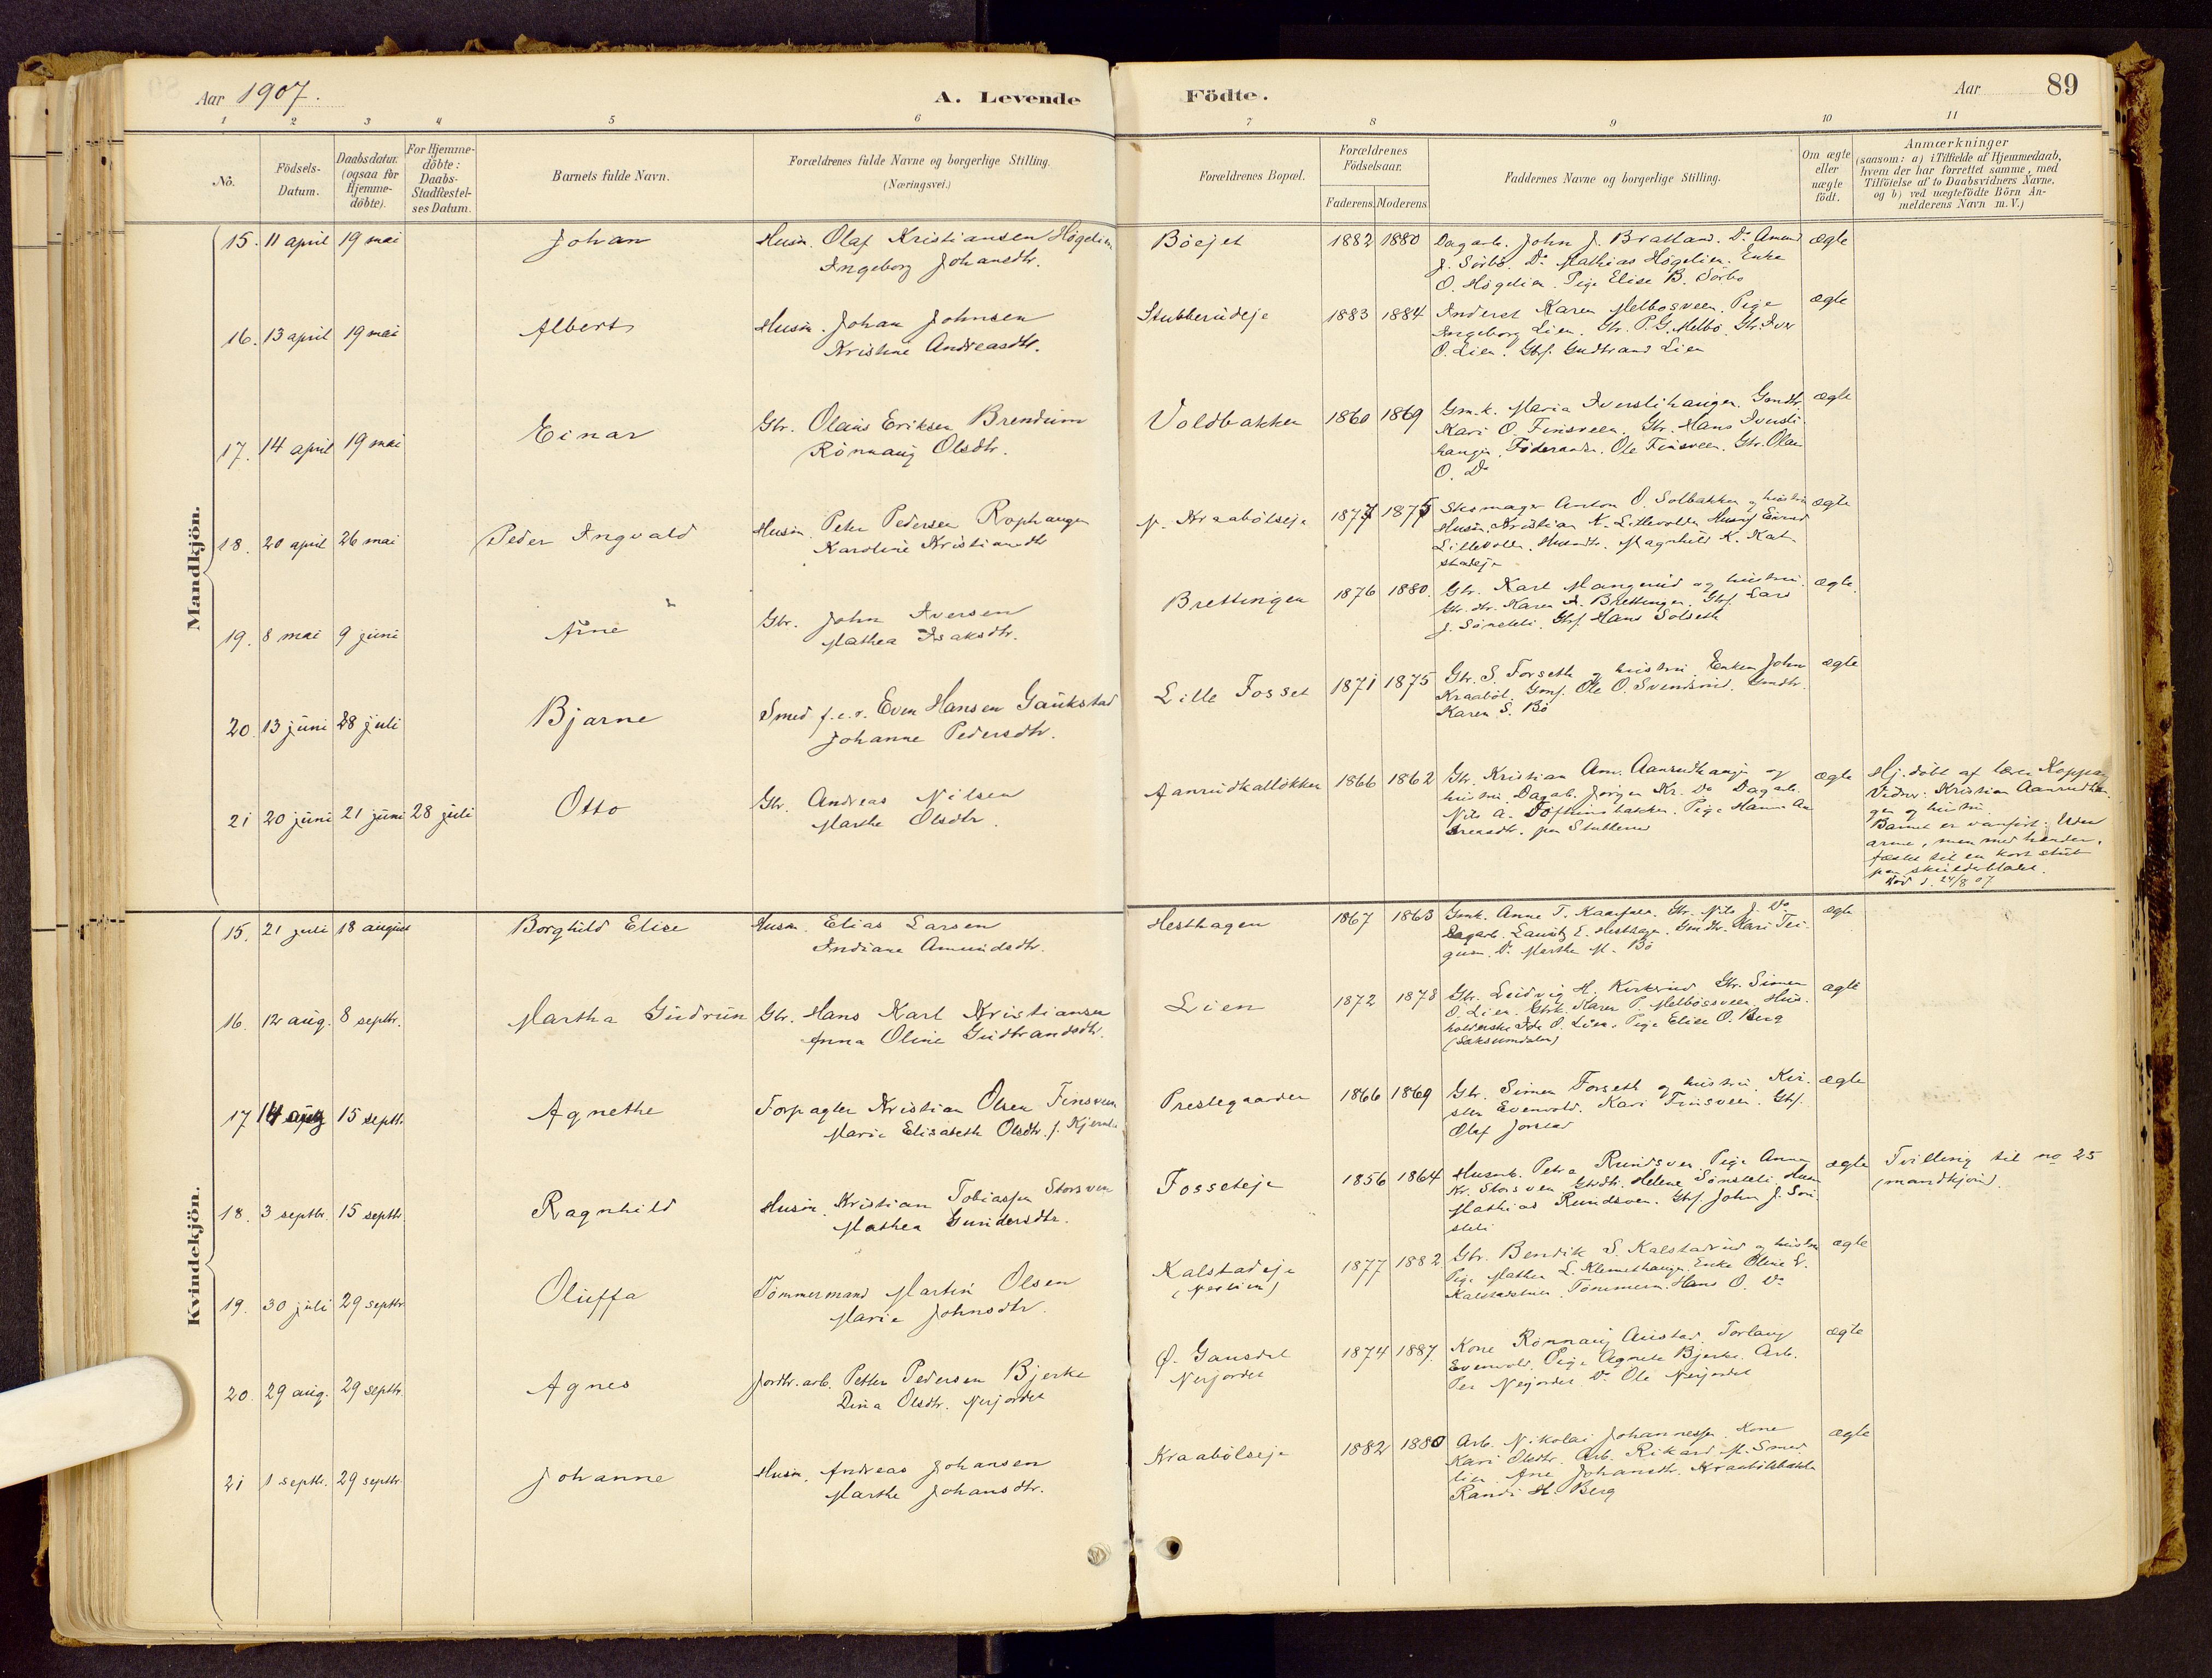 Aar 1907.
A. Levende
Födte.
Aar
89
1 2 3 4 5 6 7 8 9 10 11
No.
Födsels-Datum.
Daabsdatum (ogsaa for Hjemme-döbte).
For Hjemme-döbte: Daabs-Stadfæstel-ses Datum.
Barnets fulde Navn.
Forældrenes fulde Navne og borgerlige Stilling.
(Næringsvei.)
Forældrenes Bopæl.
Forældrenes Födselsaar.
Faderens. Moderens.
Faddernes Navne og borgerlige Stilling.
Om ægte eller uægte födt.
Anmærkninger
(saasom: a) i Tilfælde af Hjemmedaab,
hvem der har forrettet samme, med
Tilföielse af to Daabsvidners Navne,
og b) ved uægtefödte Börn An-
melderens Navn m. V.)
Mandkjön.
15. 11 april 19 mai Johan Husm. Olaf Kristiansen Högelien
Ingeborg Johansdtr.
Böejet 1882 1880 Dagarb. John J. Bratland. Do Amund ægte
J. Sörbö. Do Mathias Högelien. Enke
O. Högelien. Pige Elise B. Sörbö
16. 13 april 19 mai Albert Husm. Johan Johnsen
Kristine Andreasdtr.
Stubberudeje 1883 1884 Inderst Karen Melbösveen. Pige ægte
Ingeborg Lien. Gbr. P. G. Melbö Gbr. Iver
O. Lien. Gbs. Gudbrand Lien
17. 14 april 19 mai Einar Gbr. Olaus Eriksen Brendum
Rönnaug Olsdtr.
Voldbakken 1860 1869 Gmk. Maria Iverslihaugen. Gmdtr. ægte
Kari O. Finsveen. Gbr. Hans Iversli-
haugen. Föderaadsm. Ole Finsveen. Gbr. Olaus
O. Do
18. 20 april 26 mai Peder Ingvald Husm. Peter Pedersen Rophaugen
Karoline Kristiansdtr
N. Kraabölseje 1877 1875 Skomager Anton O. Solbakken og hustru ægte
Husm. Kristian K. Lillevolden
Lillevolden. Husmdtr. Magnhild K. Kal-
stadeje
19. 8 mai 9 juni Arne Gbr. John Iversen
Mathea Isaksdtr.
Brettingen 1876 1880. Gbr. Karl Mangerud og hustru. ægte.
Gbr. dtr. Karen A. Brettingen. Gbs. Lars
J. Sönsteli. Gbs. Hans Solseth
20. 13 juni 28 juli Bjarne Smed f.e.v. Even Hansen Gaukstad
Johanne Pedersdtr.
Lille Fosset 1871 1875 Gbr. S. Forseth og hustru. Enkem. John ægte
Kraaböl. Gms. Ole O. Svendsrud. Gmdtr.
Karen S. Bö
21 20 juni 21 juni 28 juli Otto Gbr. Andreas Nilsen
Marthe Olsdtr.
Aanrudkalløkken 1866 1862 Gbr. Kristian Am. Aanrudhaugen og ægte
hustru. Dagarb. Jörgen Kr. Do Dagarb.
Nils A. Töftumsbakken. Pige Hanna An-
dreasdtr. paa Stubberud
Hj. döbt af lærer Koppang
Vidner: Kristian Aanrudhau-
gen og hustru
Barnet er vanfört: Uden
arme, men med hænder,
fæstet til en kort stub
paa skulderbladet.
Död d. 24/8 07
Kvindekjön.
15. 21 juli 18 august Borghild Elise Husm. Elias Larsen
Indiane Amundsdtr.
Hesthagen 1867 1863 Gmk. Anne T. Gbr. Nils J. Do ægte
Dagarb. Lauritz E. Hesthagen. Gmdtr. Kari Tei-
gum. Do Marthe M. Bö
16. 12 aug. 8 septbr. Martha Gudrun Gbr. Hans Karl Kristiansen
Anna Oline Gudbrandsdtr.
Lien 1872 1878 Gbr. Ludvig H. Kirkerud Gbr. Simen ægte
O. Lien. Gbrk. Karen P. Melbösveen. Hus-
holderske Ida O. Lien. Pige Elise O. Berg
(Saksumdalen)
17 14 aug 15 septbr. Agnethe Forpagter Kristian Olsen Finsveen
Marie Elisabeth Olsdtr. f.
Prestegaarden 1866 1869 Gbr. Simen Forseth og hustru. Kir- ægte
sten Evenvold. Kari Finsveen. Gbs.
Olaf Jorstad
18. 3 septbr. 15 septbr. Ragnhild Husm. Kristian Tobiassen Storsveen
Mathea Gundersdtr.
Fosseteje 1856 1864 Husmk. Petra Rundsveen Pige Anna ægte Tvilling til no 25
Kr. Storsveen Gbrdtr. Helene Sönsteli. Husm (mandkjön).
Mathias Rundsveen. Gbs. John J. Sön-
steli
19. 30 juli 29 septbr. Oluffa Tömmermand Martin Olsen
Marie Johnsdtr.
Kalstadeje
1877 1882 Gbr. Bendik S. Kalstadrud og hustru ægte
Pige Mathea L. Klemethaugen. Enke Oline L.
Kalstadstuen. Tömmerm. Hans O. Do
20. 29 aug. 29 septbr. Agnes Jordbr. arb. Petter Pedersen Bjerke
Dina Olsdtr. Nerjordet
Ø. Gausdal
Nerjordet
1874 1887. Kone Rönnaug Austad. Torlaug ægte
Evenvold. Pige Agnete Bjerke. Arb.
Per Nerjordet. Do Ole Nerjordet
21 1 septbr. 29 septbr. Johanne Husm. Andreas Johansen
Marthe Johansdtr.
Kraabölseje 1882 1880 Arb. Nikolai Johannessen. Kone ægte
Kari Olsdtr. Arb. Rikard M. Smed-
lien. Ane Johansdtr. Kraabölsbakken
Randi H. Berg